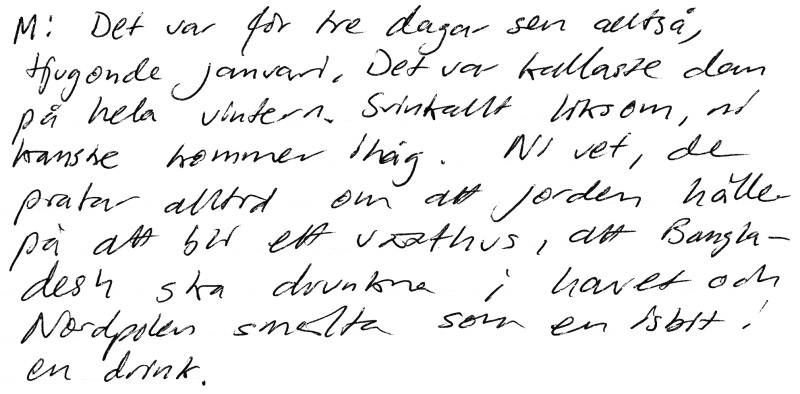 M: Det var för tre dagar sen alltså,
tjugonde januari. Det var kallaste dan
på hela vintern. Svinkallt liksom, ni
kanske kommer ihåg. Ni vet, de
pratar alltid om att jorden håller
på att bli ett växthus, att Bangla-
desh ska drunkna i havet och
Nordpolen smälta som en isbit i
en drink.